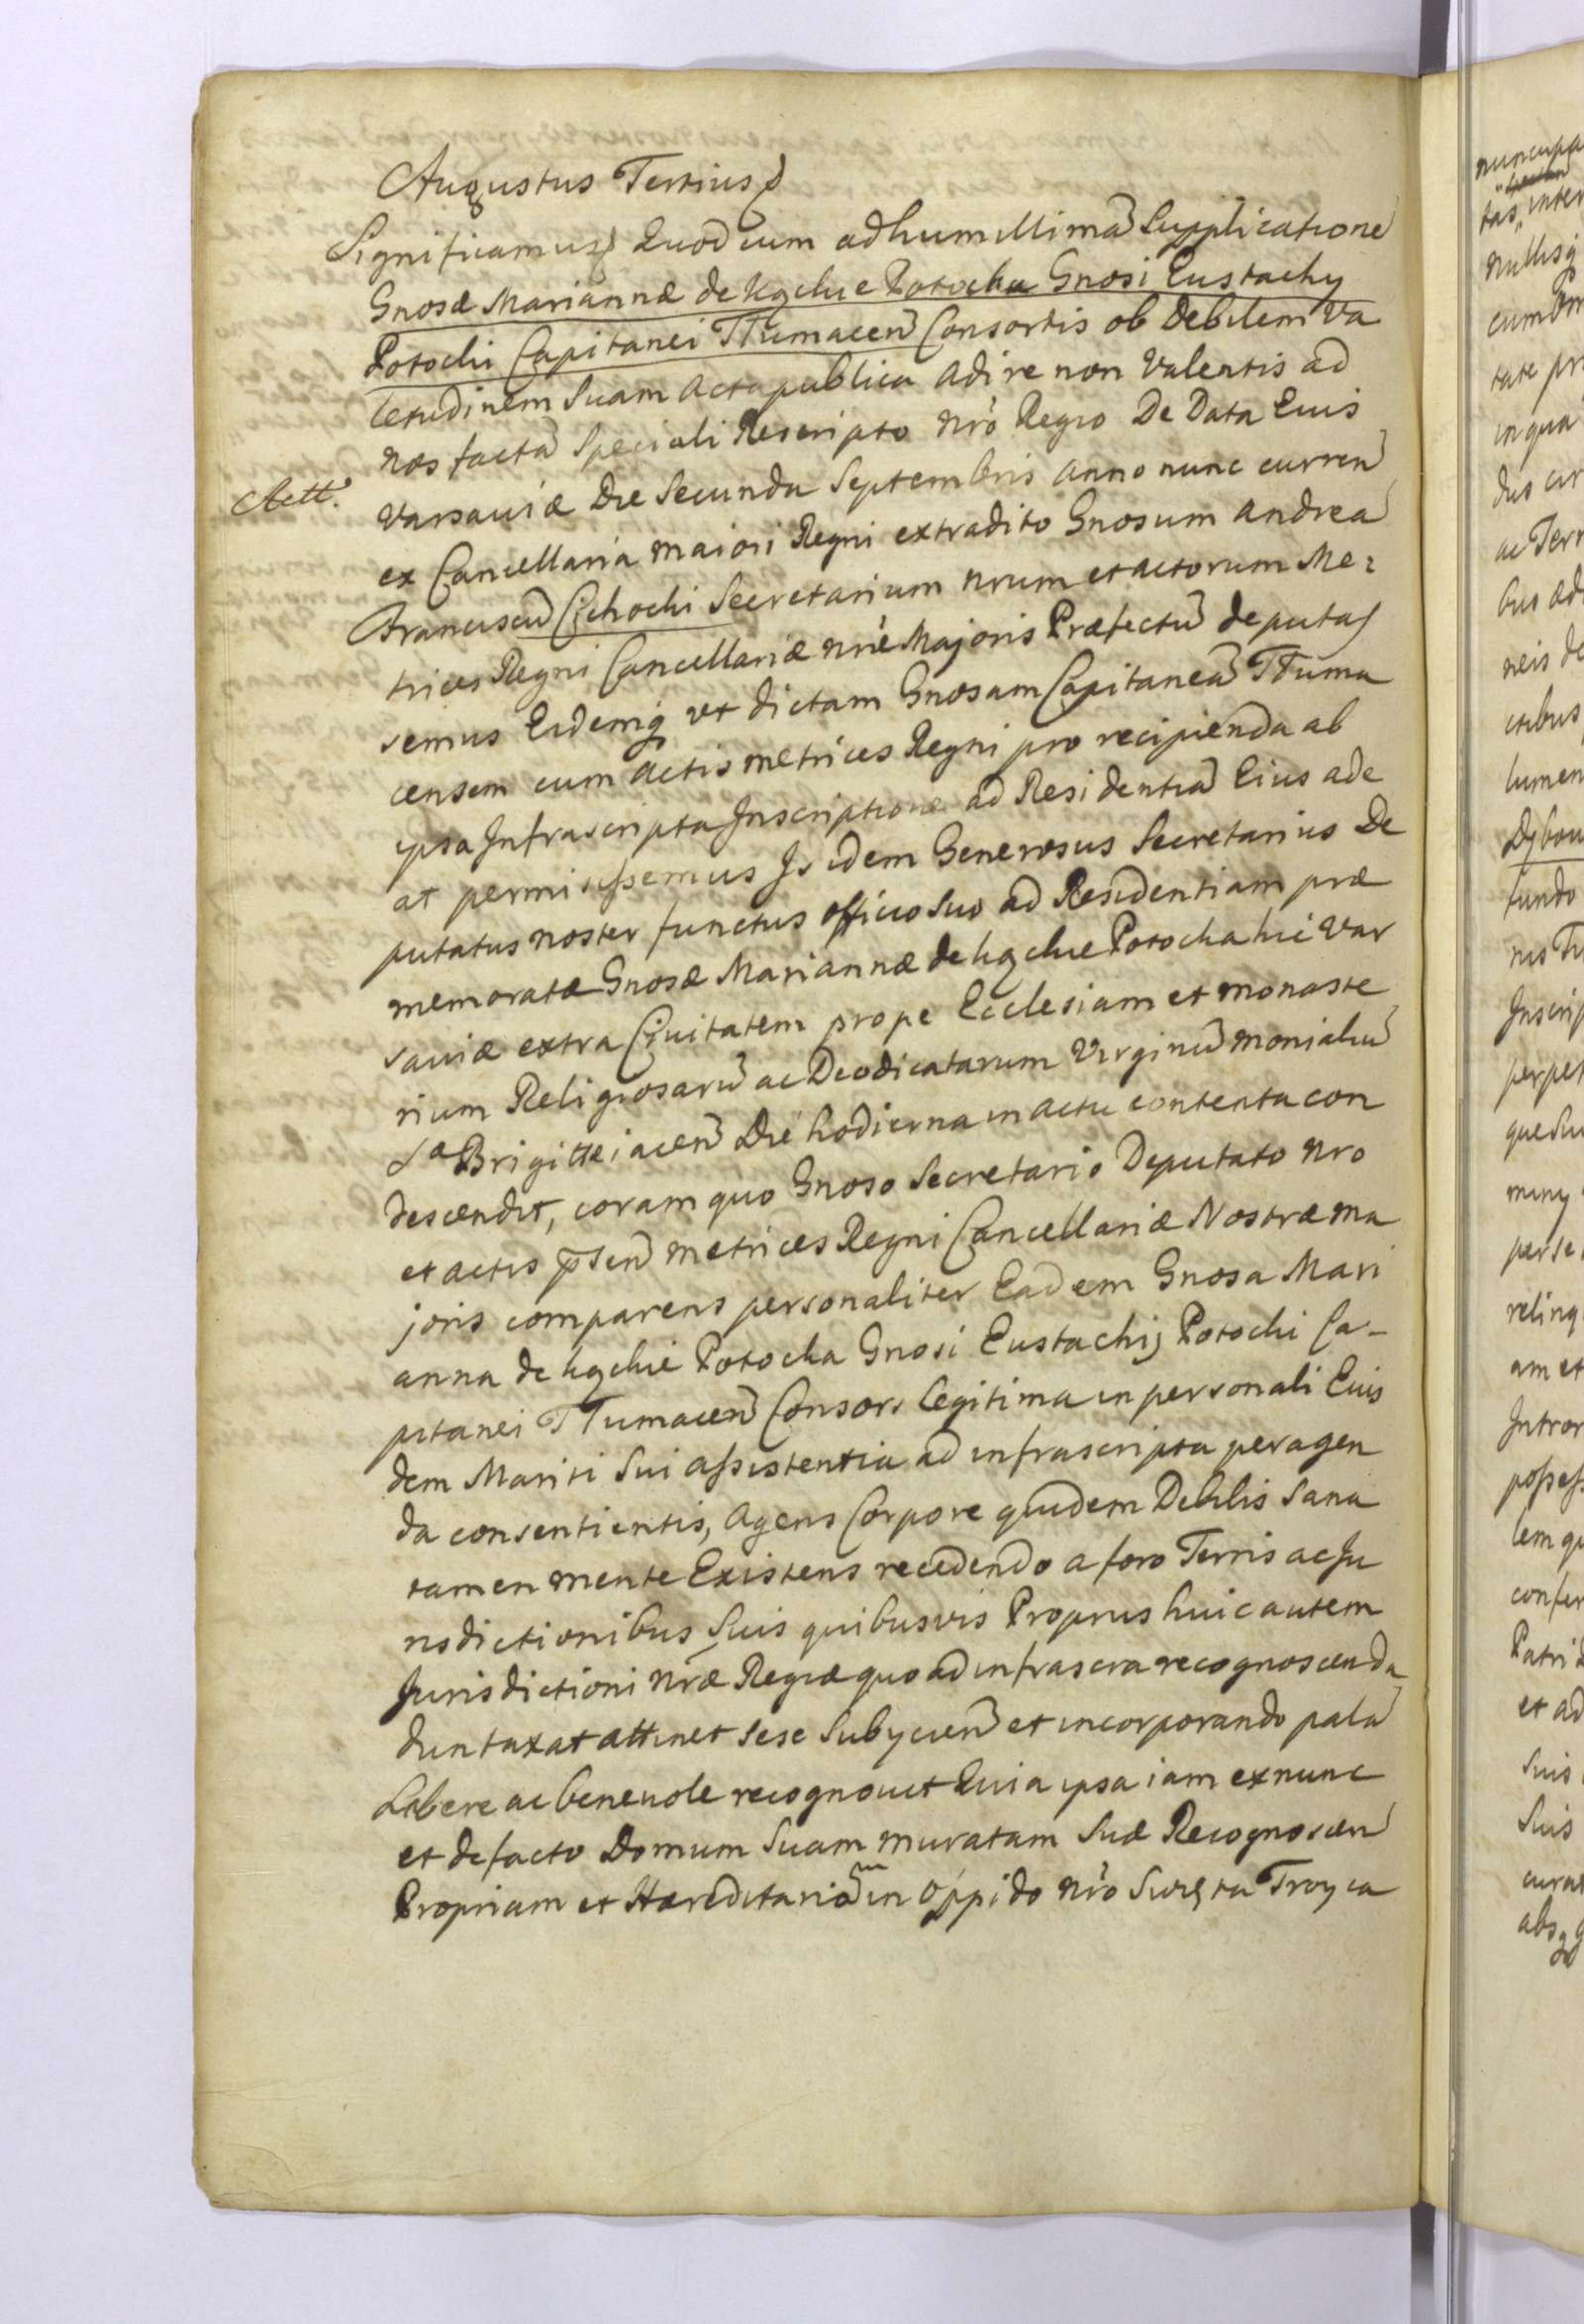 Augustus Tertius
Significamus Quod cum ad humillimã Supplicatione
Gnosæ Mariannæ de Kąckie Potocka Gnosi Eustachy
Potocki Capitanei Tłumacen Consortis ob Debilem Va
letudinem Suam Acta publica Adire non Valentis ad
nos factã Speciali Rescripto nrõ Regio De Data Eius
Varsaviæ Die Secunda Septembris Anno nunc curren
ex Cancellaria maiori Regni extradito Gnosum Andrea
Franciscũ Cichocki Secretarium nrum et actorum Me:
trices Regni Cancellariæ nrẽ Majoris Præfectũ deputas
semus Eidemq ut dictam Gnosam Capitaneã Tłuma
censem cum Actis metrices Regni pro recipienda ab
ipsa Infrascripta Inscriptione ad Residentiã Eius ade
at permisissemus Is idem Generosus Secretarius De
putatus noster functus officio Suo ad Residentiam præ
memoratæ Gnosæ Mariannæ de Kąckie Potocka hic Var
saviæ extra Civitatem prope Ecclesiam et monaste
rium Religiosarũ ac Deodicatarum Virginũ monialiũ
Sæ Brigittæ iacen Die hodierna in actu contenta con
descendit, coram quo Gnoso Secretario Deputato nro
et actis psen metrices Regni Cancellariæ Nostræ ma
joris comparens personaliter Eadem Gnosa Mari
anna de Kąckie Potocka Gnosi Eustachij Potocki Ca-
pitanei Tłumacen Consors Legitima in personali Eius
dem Mariti Sui assistentia ad infrascripta peragen
da consentientis, Agens Corpore quidem Debilis Sana
tamen mente Existens recedendo a foro Terris ac Ju
risdictionibus Suis quibusvis Proprus huic autem
Jurisdictioni nræ Regiæ quo ad infrascra recognoscenda
duntaxat attinet sese Subycien et incorporando palã
Libere ac benevole recognovit Quia ipsa iam ex nunc
et de facto Domum Suam muratam Suæ Recognoscen
Propriam et Hæreditariam in oppido nrõ Swięta Troyca